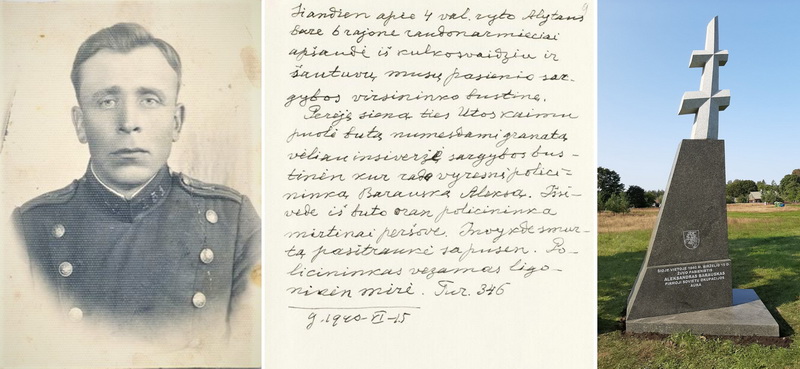 9
Šiandien apie 4 val. ryto Alytaus
bare 6 rajone raudonarmiečiai
apšaudė iš kulkosvaidžių ir
šautuvų mūsų pasienio sar-
gybos viršininko būstinę.
Perėję sieną ties Utos kaimu
puolė butą numesdami granatą
vėliau insiveržė sargybos bus-
tinėn kur rado vyresnį polici-
ninką Barauską Aleksą. Išsi-
vedė iš buto oran policininką
mirtinai peršovė. Invykdę smur-
tą pasitraukė sapusėn. Po-
licininkas vežamas ligo-
ninėn mirė. Tur. 346
g. 1940-VI-15
ŠIOJE VIETOJE 1940 M. BIRŽELIO 15 D.
ŽUVO PASIENIETIS
ALEKSANDRAS BARAUSKAS
PIRMOJI SOVIETŲ OKUPACIJOS
AUKA